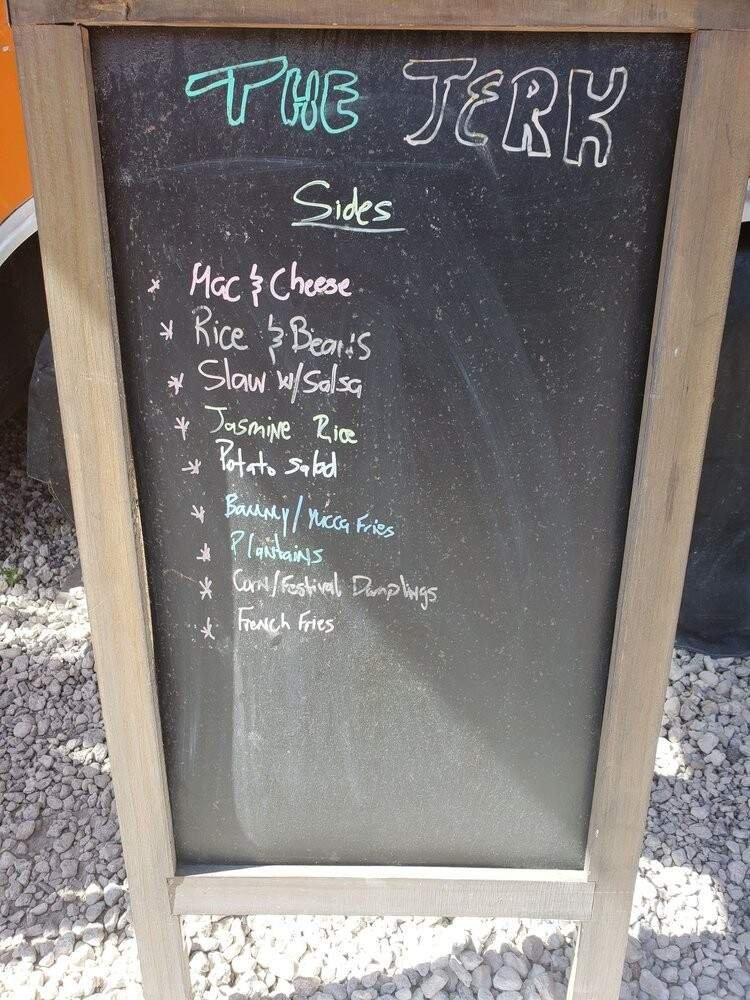 THE JERK
Sides
* Mac & Cheese
* Rice & Beans
* Slaw w/Salsa
* Jasmine Rice
* Potato salad
* Bammy/Yucca Fries
* Plantains
* Corn/Festival Dumplings
* French Fries